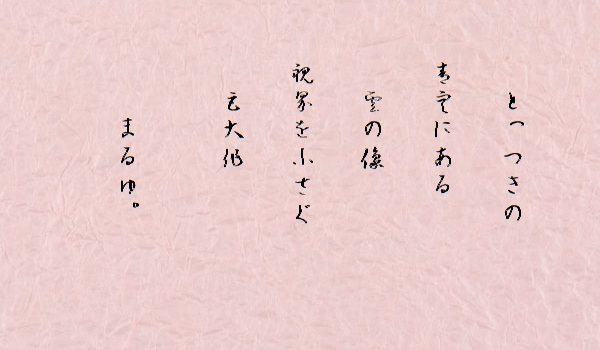 とっつきの
青空にある
雲の像
視界をふさぐ
大作
まるゆ。